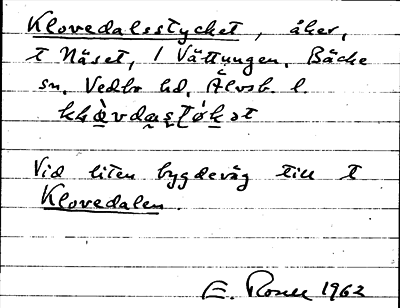 Klovedalsstycket, åker,
t Näset, / Vättungen, Bäcke
sn, Vedbo hd, Älvsb. l.
Vid liten bygdeväg till t
Klovedalen.
E. Rosell 1962